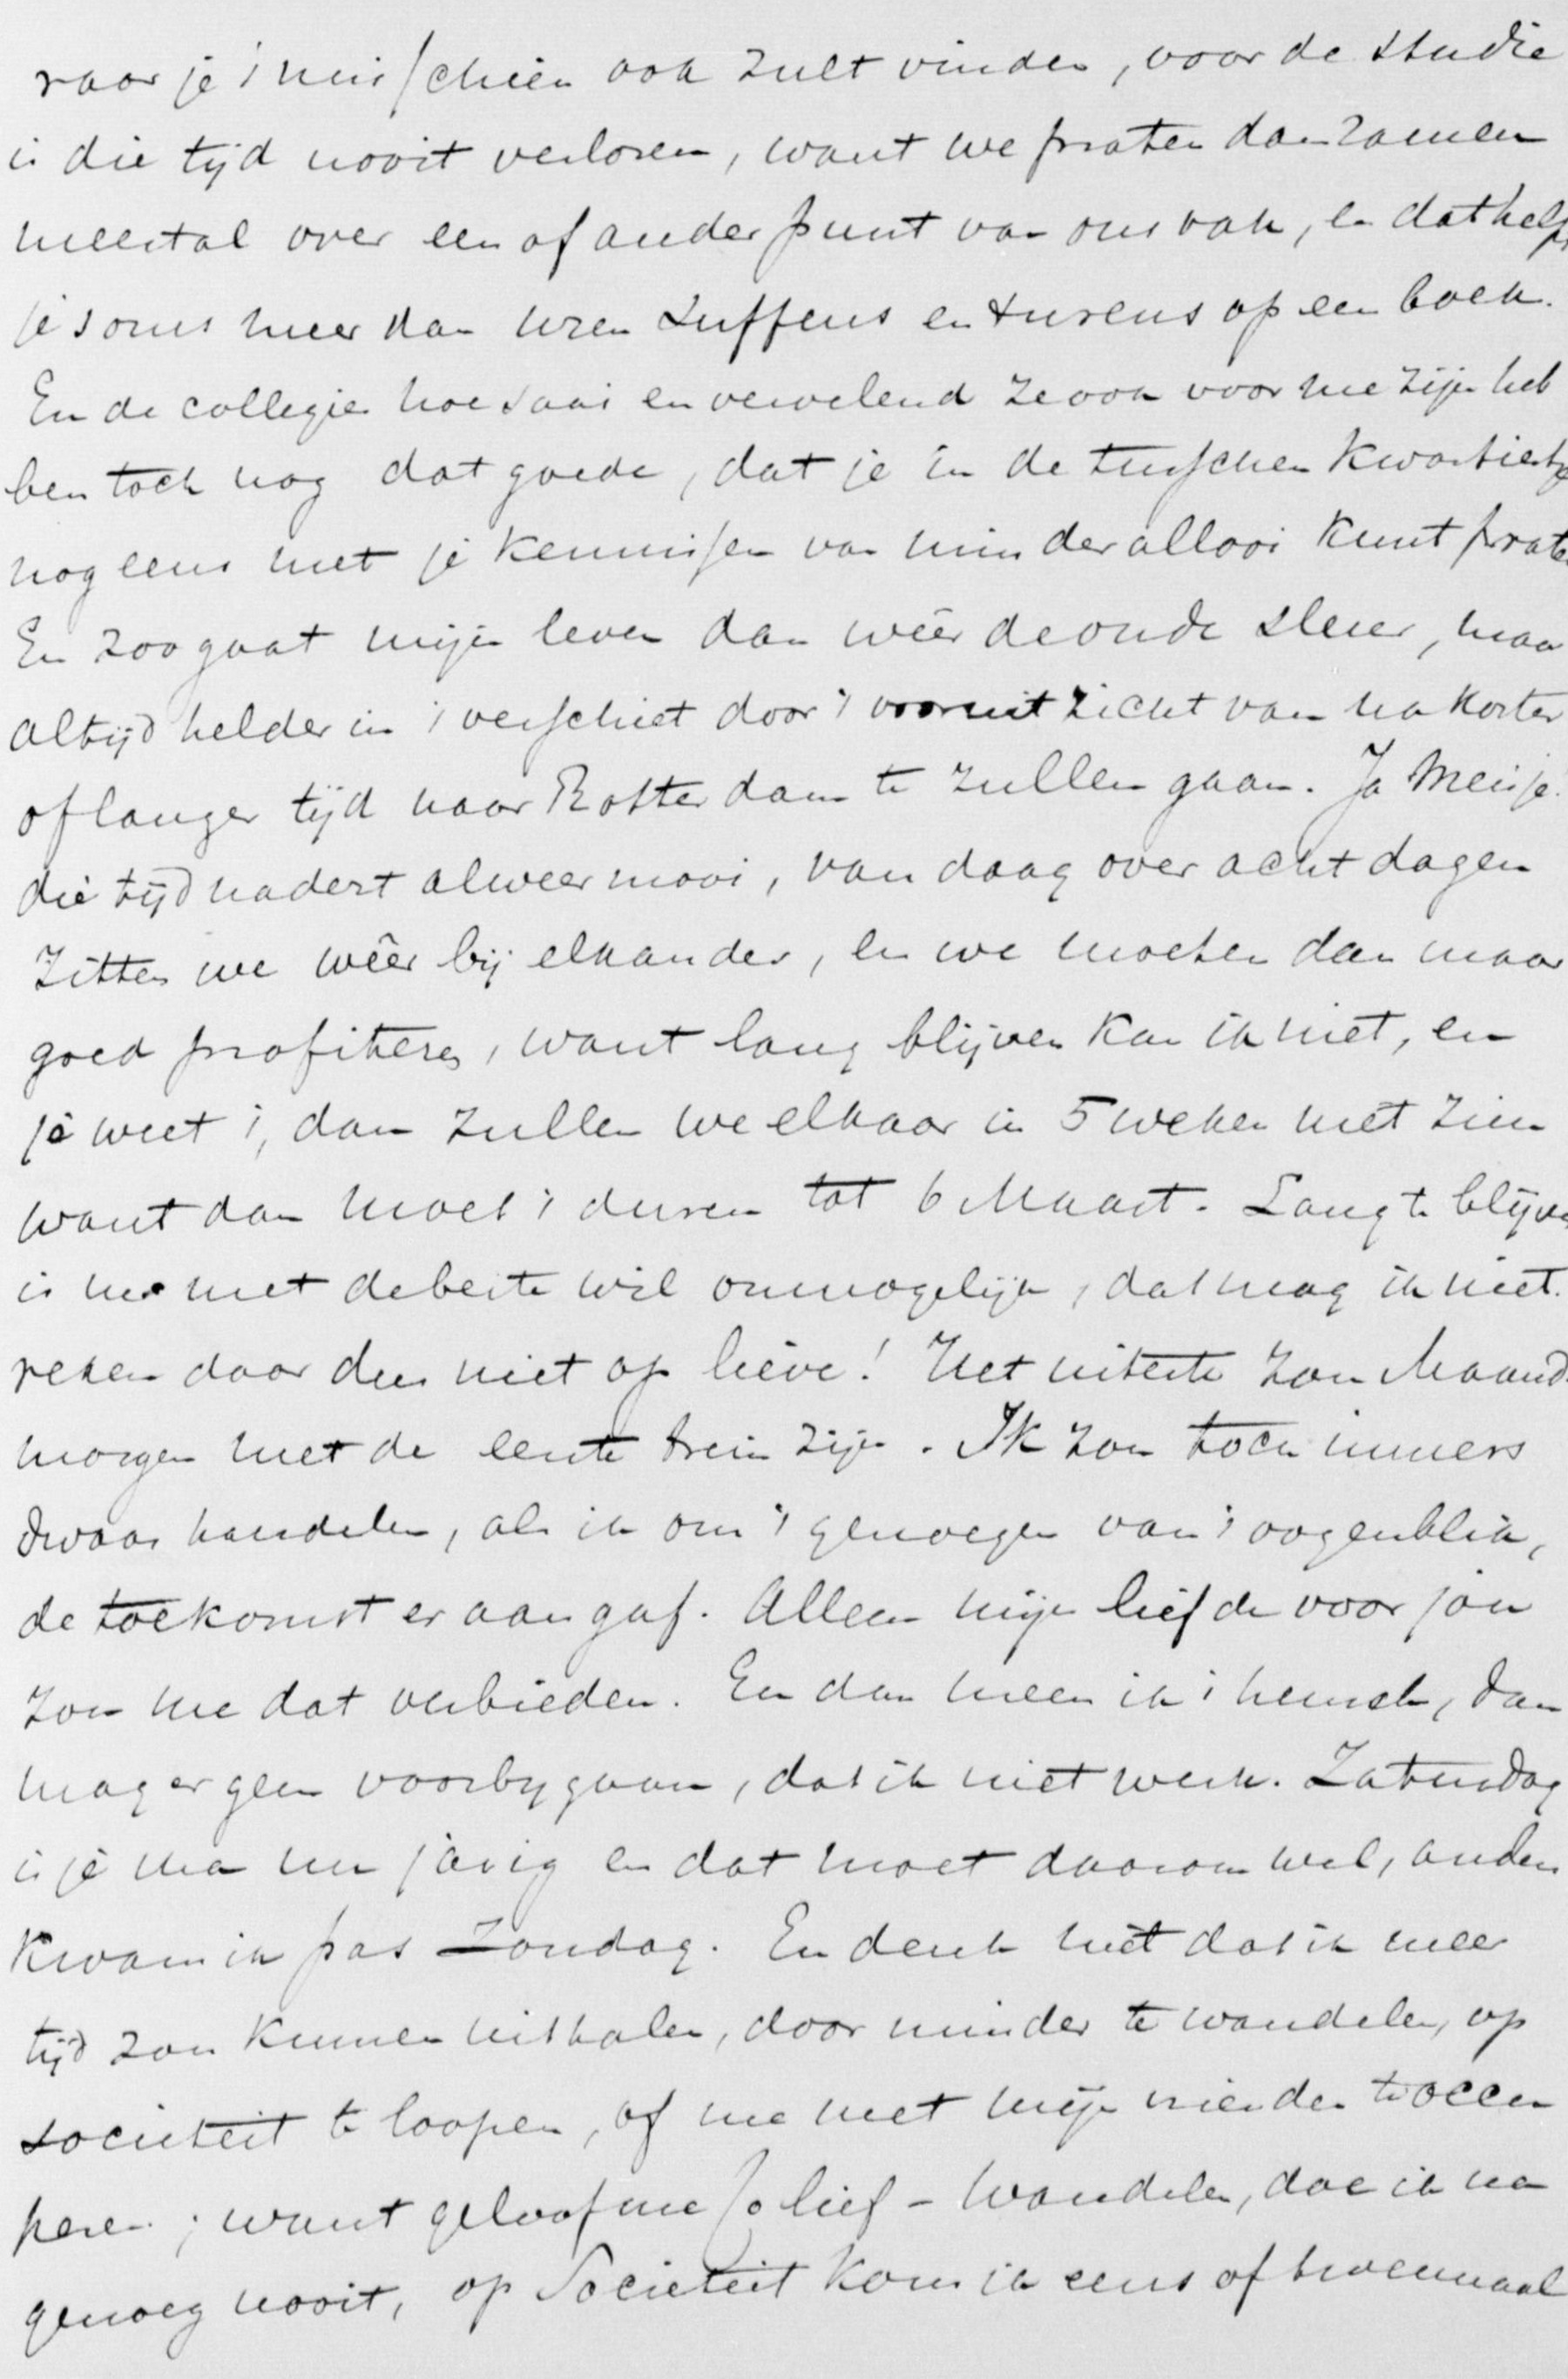 raar je 't misschien ook zult vinden, voor de studie
is die tijd nooit verloren, want we praten dan zamen
meestal over een of ander punt van ons vak, en dat helpt
je soms meer dan uren suffens en turens op een boek.
En de collegies hoe saai en vervelend ze ook voor me zijn heb
ben toch nog dat goede, dat je in de tusschen kwartiertjes
nog eens met je kennissen van minder allooi kunt praten
En zoo gaat mijn leven dan wêêr de oude sleur, maar
altijd helder in 't verschiet door 't vooruitzicht van na korter
of langer tijd naar Rotterdam te zullen gaan. Ja Meisje!
die tijd nadert alweer mooi, van daag over acht dagen
zitten we wêêr bij elkander, en we moeten dan maar
goed profiteren, want lang blijven kan ik niet, en
je weet 't, dan zullen we elkaar in 5 weken niet zien
want dan moet 't duren tot 6 Maart. Lang te blijven
is me met de beste wil onmogelijk, dat mag ik niet.
reken daar dus niet op lieve! Het uiterste zou Maand.
morgen met de eerste trein zijn. Ik zou toch immers
dwaas handelen, als ik om 't genoegen van 't oogenblik,
de toekomst er aan gaf. Alleen mijn liefde voor jou
zou me dat verbieden. En dan meen ik 't heusch, dan
mag er geen voorbygaan, dat ik niet werk. Zaturdag
is je ma nu jarig en dat moet daarom wel, anders
kwam ik pas Zondag. En denk niet dat ik meer
tijd zou kunnen uithalen, door minder te wandelen, op
societeit te loopen, of me met mijn vrienden te occu
peren; want geloof me Jo lief – wandelen, doe ik na
genoeg nooit, op Societeit kom ik eens of tweemaal